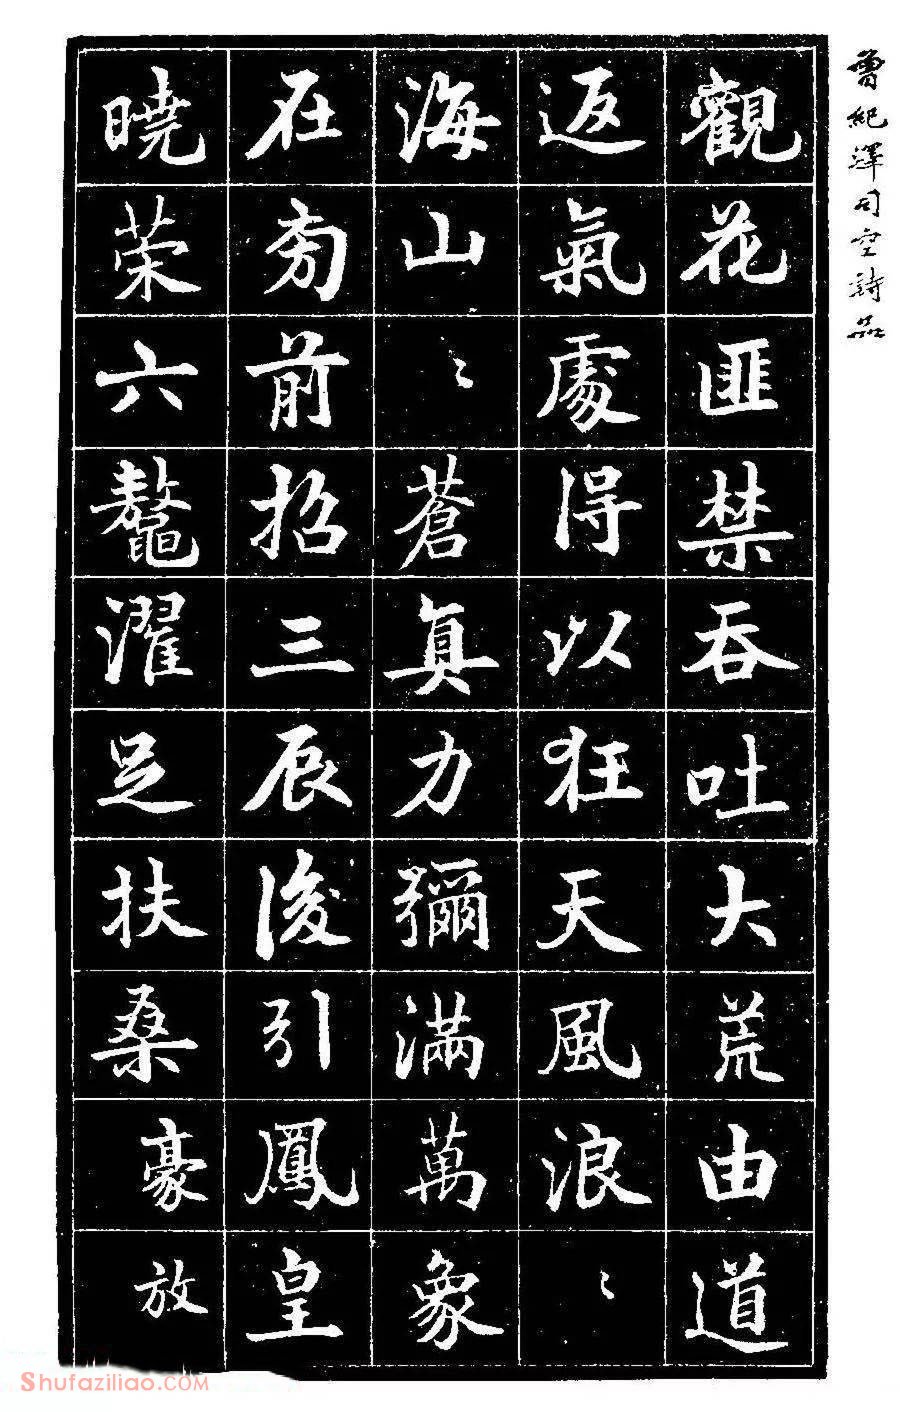 曾紀澤司空詩品
觀花匪禁吞吐大荒由道
返氣處得以狂天風浪〻
海山〻蒼真力彌滿萬象
在旁前招三辰後引鳳皇
曉策六鼇濯足扶桑豪放
Shufaziliao.COM